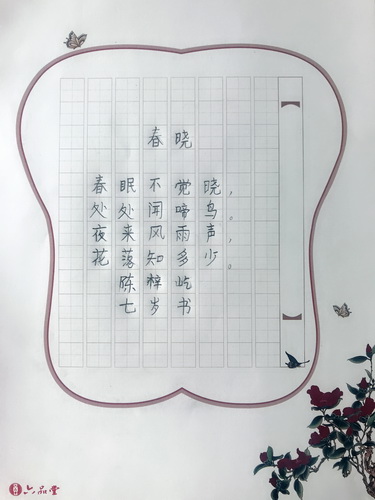 春晓
春眠不觉晓，
处处闻啼鸟。
夜来风雨声，
花落知多少。
陈梓屹
七岁书
六品堂